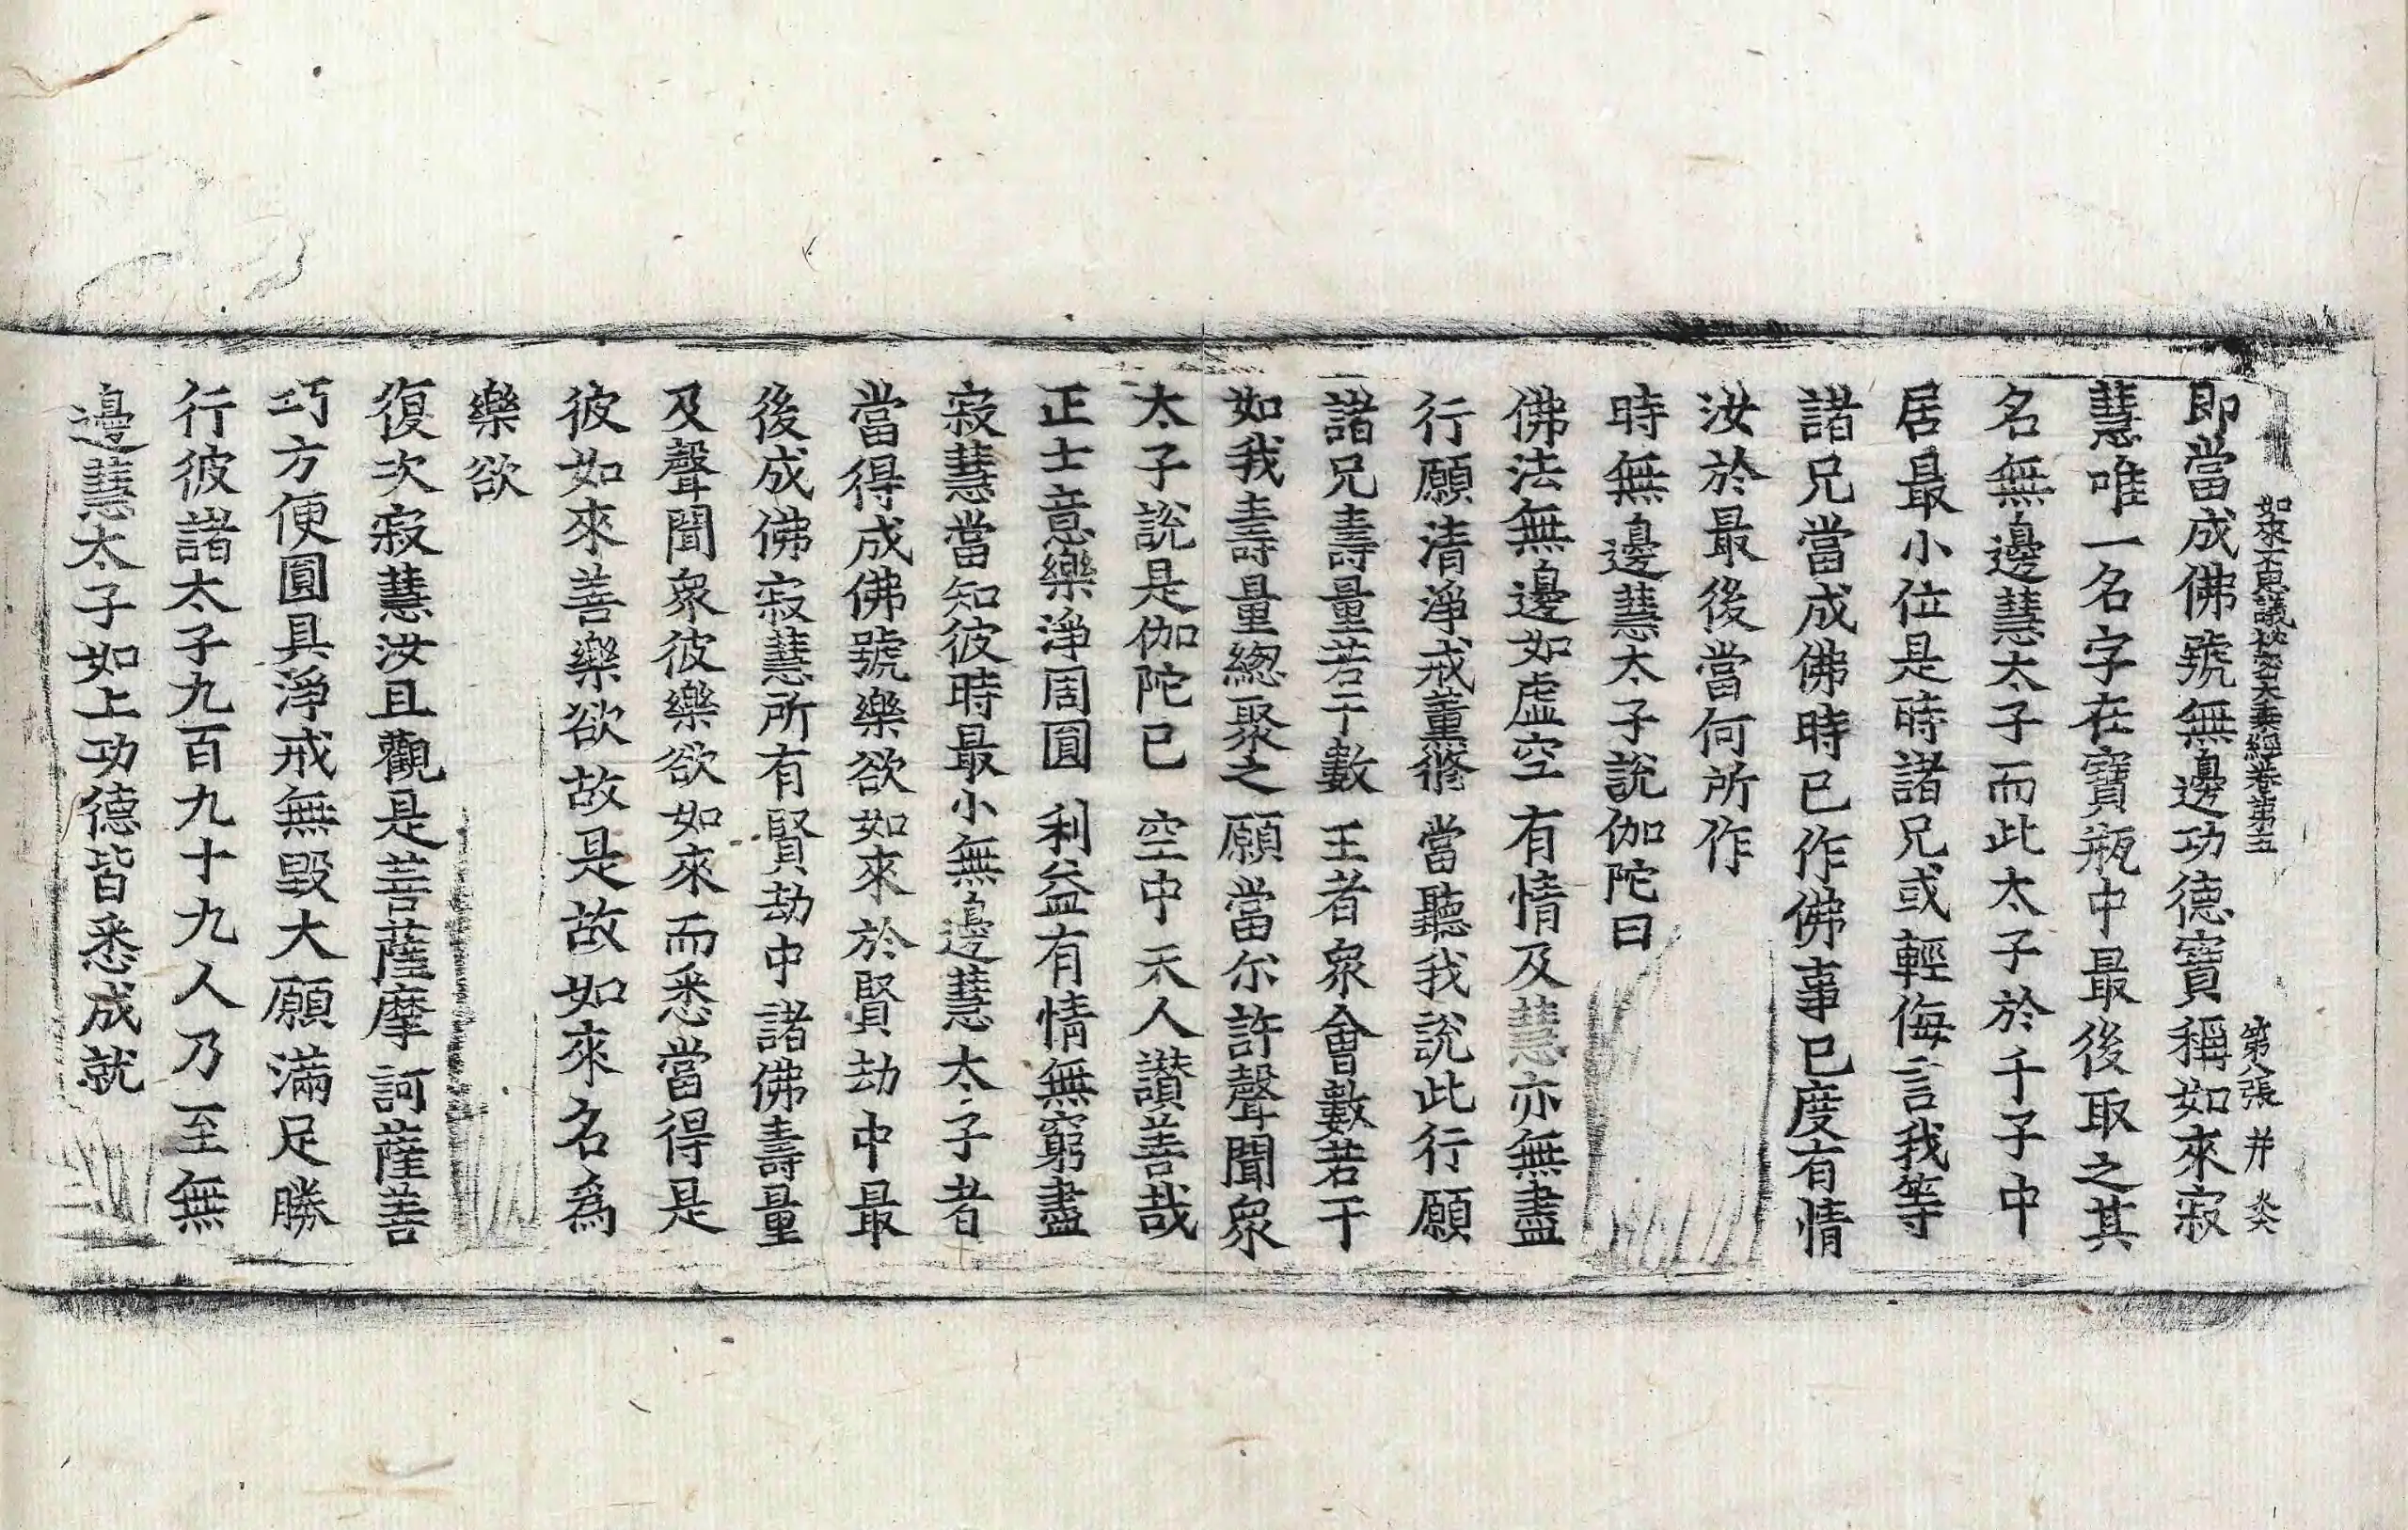 如來不思議祕密大乘經卷第五 第八張 并 炎
即當成佛號無邊功德寶稱如來寂
慧唯一名字在寶瓶中最後取之其
名無邊慧太子而此太子於千子中
居最小位是時諸兄或輕侮言我等
諸兄當成佛時已作佛事已度有情
汝於最後當何所作
時無邊慧太子說伽陀曰
佛法無邊如虛空 有情及慧亦無盡
行願清淨戒薰修 當聽我說此行願
諸兄壽量若干數 王者衆會數若干
如我壽量緫聚之 願當尒許聲聞衆
太子說是伽陀已 空中天人讚善哉
正士意樂淨周圓 利益有情無窮盡
寂慧當知彼時最小無邊慧太子者
當得成佛號樂欲如來於賢劫中最
後成佛寂慧所有賢劫中諸佛壽量
及聲聞衆彼樂欲如來而悉當得是
彼如來善樂欲故是故如來名爲
樂欲
復次寂慧汝且觀是菩薩摩訶薩善
巧方便圓具淨戒無毀大願滿足勝
行彼諸太子九百九十九人乃至無
邊慧太子如上功德皆悉成就